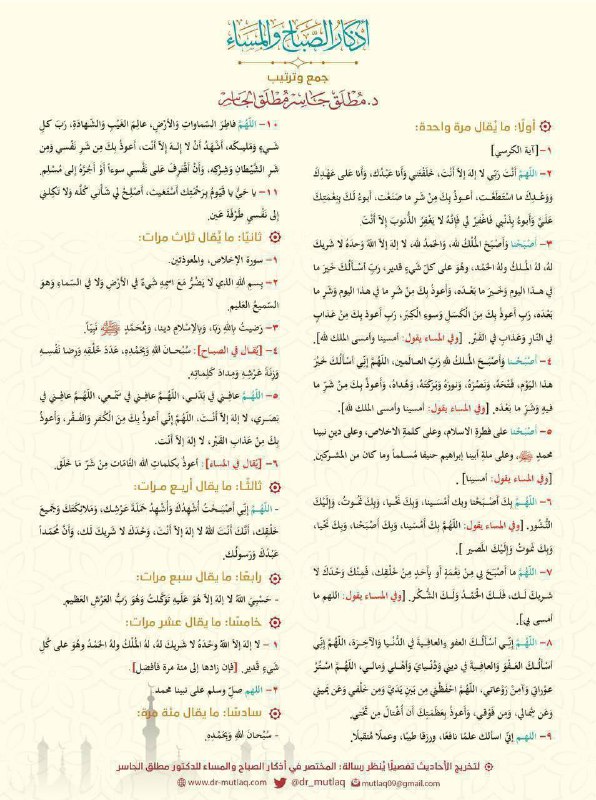 أذكار الصباح والمساء
جمع وترتيب
د. مُطْلَق جَاسِر مُطْلَق الجَاسِر
أولًا: ما يُقال مرة واحدة:
١- [آية الكرسي]
٢- اللَّهُمَّ أَنْتَ رَبِّي لا إِلهَ إِلَّا أَنْتَ، خَلَقْتَني وأنا عَبْدُكَ، وأنا على عَهْدِكَ
وَوَعْدِكَ ما اسْتَطَعْتُ، أَعوذُ بِكَ مِنْ شَرِّ ما صَنَعْتُ، أبوءُ لَكَ بِنِعْمَتِكَ
عَلَيَّ وَأَبوءُ بِذَنْبي فَاغْفِرْ لي فإِنَّهُ لا يَغْفِرُ الذُّنوبَ إِلَّا أَنْتَ
٣- أَصْبَحْنا وَأَصْبَحَ الْمُلْكُ لله، وَالحَمدُ لله، لا إلهَ إلاَّ اللهُ وَحدَهُ لا شَريكَ
لهُ، لهُ المُلكُ ولهُ الحَمْد، وهُوَ على كلّ شَيءٍ قدير، رَبِّ أسْأَلُكَ خَيرَ ما
في هذا اليوم وَخَيرَ ما بَعْدَه، وَأَعوذُ بِكَ مِنْ شَرِّ ما في هذا اليوم وَشَرِّ ما
بَعْدَه، رَبِّ أَعوذُ بِكَ مِنَ الْكَسَلِ وَسوءِ الْكِبَر، رَبِّ أَعوذُ بِكَ مِنْ عَذابٍ
في النّارِ وَعَذابٍ في القَبْر. [وفي المساء يقول: أمسينا وأمسى الملك لله].
٤- أَصْبَحْنا وَأَصْبَحَ المُلكُ للهِ رَبِّ العالَمين، اللَّهُمَّ إِنِّي أَسْأَلُكَ خَيْرَ
هذا اليَوْم، فَتْحَهُ، وَنَصْرَهُ، وَنورَهُ وَبَرَكَتَهُ، وَهُداهُ، وَأَعوذُ بِكَ مِنْ شَرِّ ما
فيهِ وَشَرِّ ما بَعْدَه. [وفي المساء يقول: أمسينا وأمسى الملك لله].
٥- أصْبَحْنا على فطرةِ الاسلام، وعلى كلمةِ الاخلاص، وعلى دينِ نبينا
محمدٍ ﷺ، وعلى ملةِ أبينا إبراهيم حنيفا مُسلماً وما كان من المشركين.
[وفي المساء يقول: أمسينا].
٦- اللَّهُمَّ بِكَ أَصْـبَحْنا وبِك أَمْسَينا، وَبِكَ نَحْيا، وَبِكَ نَمُوتُ، وَإِلَيْكَ
النُّشُور. [وفي المساء يقول: اللَّهُمَّ بِكَ أَمْسَيْنا، وَبِكَ أَصْبَحْنا، وَبِكَ نَحْيَا،
وَبِكَ نَمُوتُ وَإِلَيْكَ المَصِير].
٧- اللَّهُمَّ ما أَصْبَحَ بي مِنْ نِعْمَةٍ أَو بِأَحَدٍ مِنْ خَلْقِك، فَمِنْكَ وَحْدَكَ لا
شَريكَ لَك، فَلَكَ الْحَمْدُ وَلَكَ الشُّكْر. [وفي المساء يقول: اللهم ما
أمسى بي].
٨- اللَّهُمَّ إِنِّي أَسْأَلُكَ العفو والعافِيةَ في الدُّنْيا وَالآخِرَة، اللَّهُمَّ إِنِّي
أَسْأَلُكَ العَفْوَ وَالعافِيةَ في ديني وَدُنْيايَ وَأهْلي وَمالي، اللَّهُمَّ اسْتُرْ
عوْراتي وَآمِنْ رَوْعاتي، اللَّهُمَّ احْفَظْني مِن بَينِ يَدَيَّ وَمِن خَلْفي وَعَن يَميني
وَعَن شِمالي، وَمِن فَوْقي، وَأَعوذُ بِعَظَمَتِكَ أَن أُغْتالَ مِن تَحْتي.
٩- اللهم إنِّي أسألكَ علمًا نافعًا، ورزقًا طيبًا، وعملًا مُتقبلًا.
١٠- اللَّهُمَّ فاطِرَ السَّماواتِ وَالأرْضِ، عالِمَ الغَيْبِ وَالشَّهادَةِ، رَبَّ كلِّ
شَيءٍ وَمَليكَه، أَشْهَدُ أَنْ لا إِلهَ إِلاَّ أَنْت، أَعوذُ بِكَ مِن شَرِّ نَفْسي وَمِن
شَرِّ الشَّيْطانِ وَشِرْكِه، وَأَنْ أَقْتَرِفَ عَلى نَفْسي سوءاً أَوْ أَجُرَّهُ إِلى مُسْلِم.
١١- يا حَيُّ يا قَيُّومُ بِرَحْمَتِكَ أَسْتَغيث، أَصْلِحْ لي شَأْني كُلَّه وَلا تَكِلني
إِلى نَفْسي طَرْفَةَ عَين.
ثانيًا: ما يُقال ثلاث مرات:
١- سورة الإخلاص، والمعوذتين.
٢- بِسمِ اللهِ الذي لا يَضُرُّ مَعَ اسمِهِ شَيءٌ في الأرْضِ وَلا في السّماءِ وَهوَ
السّميعُ العَليم.
٣- رَضيتُ باللهِ رَبًّا، وبِالإسْلامِ دينا، وبِمُحَمَّدٍ ﷺ نَبِيّاً.
٤- [يُقال في الصباح]: سُبْحـانَ اللهِ وَبِحَمْدِهِ، عَدَدَ خَلْقِه وَرِضا نَفْسِه
وَزِنَةَ عَرْشِه وَمِدادَ كَلِماتِه.
٥- اللَّهُمَّ عافِني في بَدَني، اللَّهُمَّ عافِني في سَمْعي، اللَّهُمَّ عافِني في
بَصَري، لا إلهَ إلاَّ أَنْت، اللَّهُمَّ إِنِّي أَعوذُ بِكَ مِنَ الْكُفر وَالفَقْر، وَأَعوذُ
بِكَ مِنْ عَذابِ القَبْر، لا إلهَ إلاَّ أَنْت.
٦- [يُقال في المساء]: أَعوذُ بكلِماتِ الله التّامّاتِ مِنْ شَرِّ ما خَلَق.
ثالثًا: ما يقال أربع مرات:
- اللَّهُمَّ إِنِّي أَصْبَحْتُ أُشْهِدُكَ وَأُشْهِدُ حَمَلَةَ عَرْشِك، وَمَلائِكَتَكَ وَجَميعَ
خَلْقِك، أَنَّكَ أَنْتَ اللهُ لا إلهَ إلاَّ أَنْتَ، وَحْدَكَ لا شَريكَ لَك، وَأَنَّ مُحَمَّداً
عَبْدُكَ وَرَسولُك.
رابعًا: ما يقال سبع مرات:
- حَسْبِيَ اللهُ لا إلهَ إلاَّ هوَ عَلَيهِ تَوَكَّلتُ وَهوَ رَبُّ العَرْشِ العَظيم.
خامسًا: ما يقال عشر مرات:
١- لا إلهَ إلاَّ اللهُ وحْدَهُ لا شَريكَ لهُ، لهُ المُلْكُ ولهُ الحَمْدُ وهُوَ على كُلِّ
شَيءٍ قَدير. [فإن زادها إلى مئة مرة فأفضل].
٢- اللهم صلّ وسلم على نبينا محمد
سادسًا: ما يقال مئة مرة:
- سُبْحانَ اللهِ وَبِحَمْدِه.
لتخريج الأحاديث تفصيلًا يُنظر رسالة: المختصر في أذكار الصباح والمساء للدكتور مطلق الجاسر
www.dr-mutlaq.com @dr_mutlaq mutlaq09@gmail.com